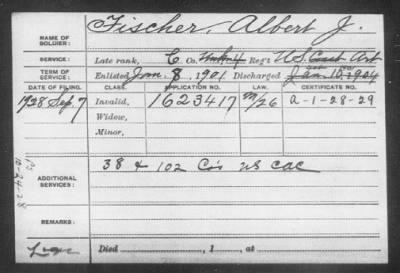 NAME OF SOLDIER: Fischer, Albert J.
SERVICE: Late rank, C Co. Unk 4 Reg't US Cast Art
TERM OF SERVICE: Enlisted Jan. 8, 1901 Discharged Jan 10, 1904
DATE OF FILING. CLASS. APPLICATION NO. LAW. CERTIFICATE NO.
1928 Sep 7 Invalid, 1623417 M/26 a-1-28-29
Widow,
Minor,
ADDITIONAL SERVICES: 38 & 102 Co's US CAC
REMARKS:
Died , 1 , at
10-24-28